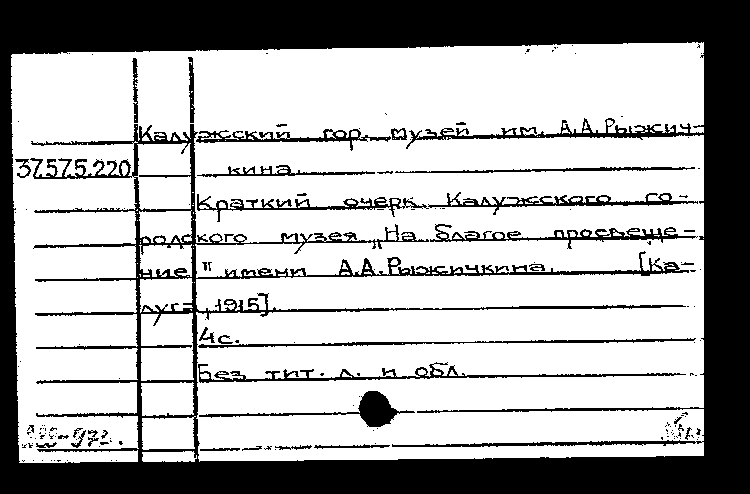 Калужский гор. музей им. А.А.Рыжич-
37.575.220 кина.
Краткий очерк Калужского го-
родского музея „На благое просвеще-
ние" имени А.А.Рыжичкина. [Ка-
луга, 1915].
4с.
Без тит. л. и обл.